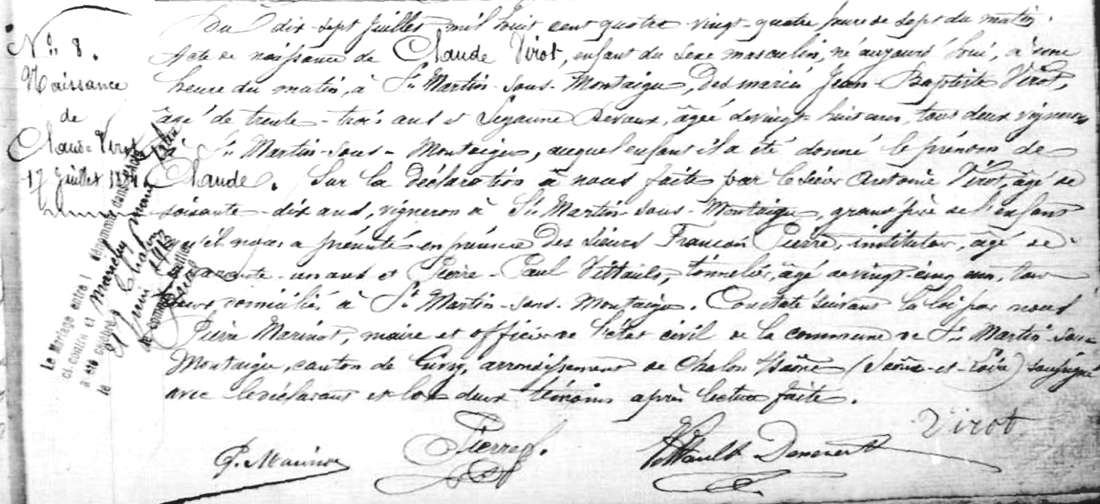 Du dix-sept juillet mil huit cent quatre-vingt-quatre heure de sept du matin.
Nº 8.
Naissance
de
Claude Virot
17 juillet 1884
Acte de naissance de Claude Virot, enfant du sexe masculin, né aujourd'hui, à une
heure du matin, à St Martin-sous-Montaigu, des mariés Jean-Baptiste Virot,
âgé de trente-trois ans et Devaux, âgée de vingt-huit ans, tous deux vignerons
à St Martin-sous-Montaigu, auquel enfant il a été donné le prénom de
Claude. Sur la déclaration à nous faite par le sieur Antoine Virot, âgé de
soixante-dix ans, vigneron à St Martin-sous-Montaigu, grand père de l'enfant
qu'il nous a présenté en présence des sieurs François Pierre, instituteur, âgé de
quarante-un ans et Pierre-Paul tonnelier, âgé de vingt-cinq ans, tous
deux domiciliés à St Martin-sous-Montaigu. Constaté suivant la loi par nous
Pierre Marinot, maire et officier de l'état civil de la commune de St Martin-sous-
Montaigu, canton de Givry, arrondissement de Chalon s/Saône (Saône-et-Loire) soussigné
avec le déclarant et les deux témoins après lecture faite.
Le Mariage entre l dénommé dans l'acte
ci-contre et
a été célébré
le
P. Marinot
Pierre f.
Virot